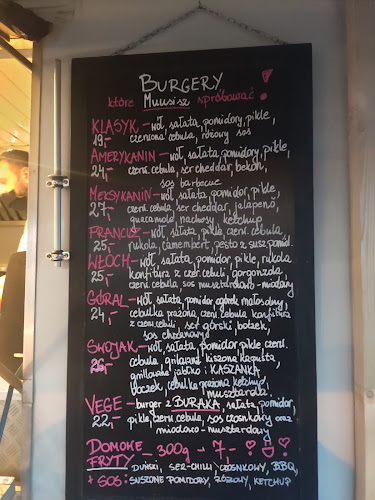 BURGERY
które Muusisz spróbować!
KLASYK - wół, sałata, pomidory, pikle,
19,- czerwona cebula, różowy sos
AMERYKANIN - wół, sałata, pomidory, pikle,
24,- czerw. cebula, ser cheddar, bekon,
sos barbecue
MEKSYKANIN - wół, sałata, pomidory, pikle,
27,- czerw. cebula, ser cheddar, jalapeño,
guacamole, nachosy, ketchup
FRANCUZ - wół, sałata, pikle, czerw. cebula,
25,- rukola, camembert, pesto z susz. pomid.
WŁOCH - wół, sałata, pomidory, pikle, rukola
25,- konfitura z czer. cebuli, gorgonzola,
czerw. cebula, sos musztardowo-miodowy
GÓRAL - wół, sałata, pomidor, ogórek małosolny,
24,- cebulka prażona, czerw. cebula, konfitura
z czerw. cebuli, ser górski, boczek,
sos chrzanowy
SWOJAK - wół, sałata, pomidor, pikle, czerw.
26,- cebula, grilowana kiszona kapusta,
grillowane jabłko i KASZANKA,
boczek, cebulka prażona, ketchup,
musztarda
VEGE - burger z BURAKA, sałata, pomidor,
22,- pikle, czerw. cebula, sos czosnkowy oraz
miodowo-musztardowy
DOMOWE - 300g - 7,-
FRYTY DUŃSKI, SER-CHILI, CZOSNKOWY, BBQ,
+ SOS: SUSZONE POMIDORY, RÓŻOWY, KETCHUP